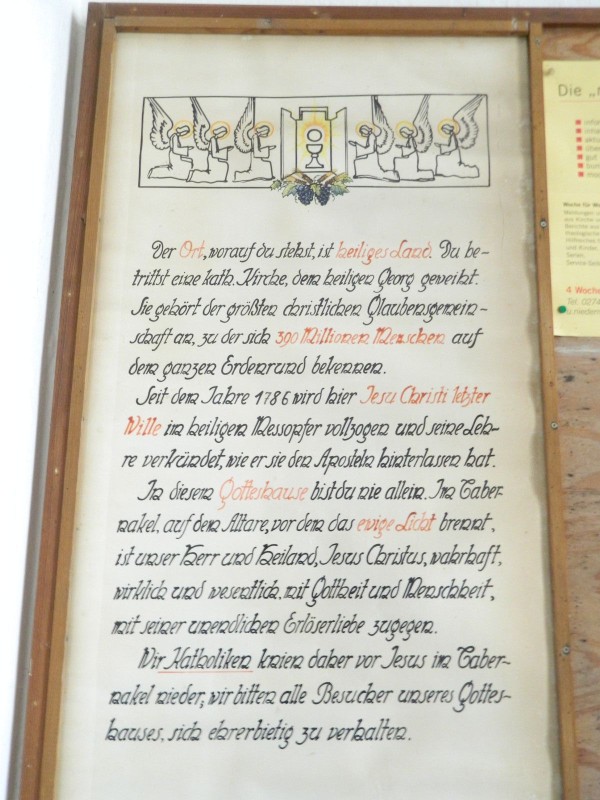 Der Ort, worauf du stehst, ist heiliges Land. Du be-
trittst eine kath. Kirche, dem heiligen Georg geweiht.
Sie gehört der größten christlichen Glaubensgemein-
schaft an, zu der sich 390 Millionen Menschen auf
dem ganzen Erdenrund bekennen.
Seit dem Jahre 1786 wird hier Jesu Christi letzter
Wille im heiligen Messopfer vollzogen und seine Leh-
re verkündet, wie er sie den Aposteln hinterlassen hat.
In diesem Gotteshause bist du nie allein. Im Taber-
nakel, auf dem Altare, vor dem das ewige Licht brennt,
ist unser Herr und Heiland, Jesus Christus, wahrhaft,
wirklich und wesentlich, mit Gottheit und Menschheit,
mit seiner unendlichen Erlöserliebe zugegen.
Wir Katholiken knien daher vor Jesus im Taber-
nakel nieder; wir bitten alle Besucher unseres Gottes-
hauses, sich ehrerbietig zu verhalten.
Die
4 Woche
Tel. 0274